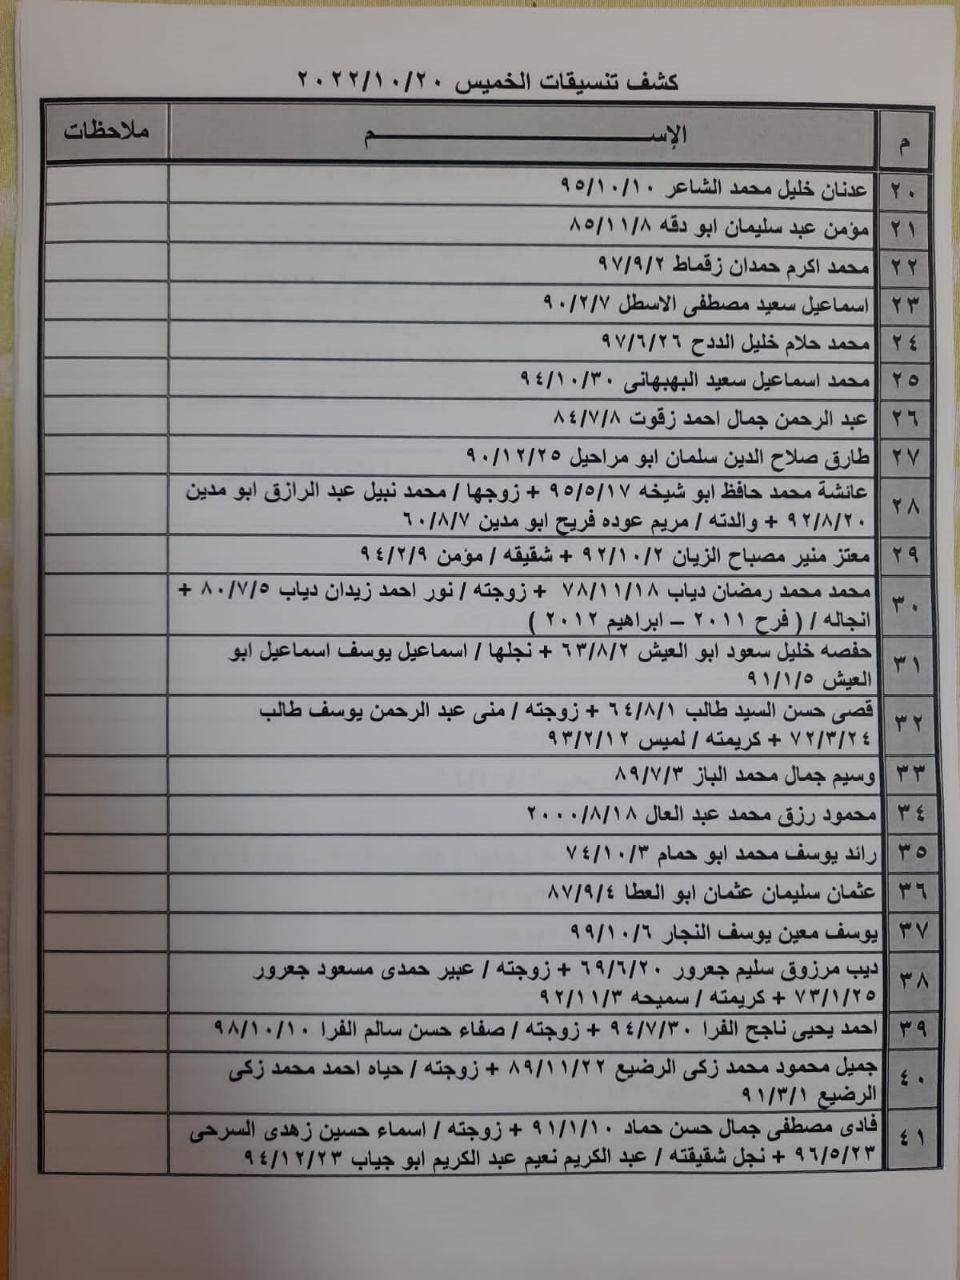 كشف تنسيقات الخميس ٢٠٢٢/١٠/٢٠
م الإســـــــــــم ملاحظات
٢٠ عدنان خليل محمد الشاعر ٩٥/١٠/١٠
٢١ مؤمن عبد سليمان ابو دقه ٨٥/١١/٨
٢٢ محمد اكرم حمدان زقماط ٩٧/٩/٢
٢٣ اسماعيل سعيد مصطفى الاسطل ٩٠/٢/٧
٢٤ محمد حلام خليل الددح ٩٧/٦/٢٦
٢٥ محمد اسماعيل سعيد البهبهانى ٩٤/١٠/٣٠
٢٦ عبد الرحمن جمال احمد زقوت ٨٤/٧/٨
٢٧ طارق صلاح الدين سلمان ابو مراحيل ٩٠/١٢/٢٥
٢٨ عائشة محمد حافظ ابو شيخه ٩٥/٥/١٧ + زوجها / محمد نبيل عبد الرازق ابو مدين
٩٢/٨/٢٠ + والدته / مريم عوده فريح ابو مدين ٦٠/٨/٧
٢٩ معتز منير مصباح الزيان ٩٢/١٠/٢ + شقيقه / مؤمن ٩٤/٢/٩
٣٠ محمد محمد رمضان دياب ٧٨/١١/١٨ + زوجته / نور احمد زيدان دياب ٨٠/٧/٥ +
انجاله / ( فرح ٢٠١١ – ابراهيم ٢٠١٢ )
٣١ حفصه خليل سعود ابو العيش ٦٣/٨/٢ + نجلها / اسماعيل يوسف اسماعيل ابو
العيش ٩١/١/٥
٣٢ قصى حسن السيد طالب ٦٤/٨/١ + زوجته / منى عبد الرحمن يوسف طالب
٧٢/٣/٢٤ + كريمته / لميس ٩٣/٢/١٢
٣٣ وسيم جمال محمد الباز ٨٩/٧/٣
٣٤ محمود رزق محمد عبد العال ٢٠٠٠/٨/١٨
٣٥ رائد يوسف محمد ابو حمام ٧٤/١٠/٣
٣٦ عثمان سليمان عثمان ابو العطا ٨٧/٩/٤
٣٧ يوسف معين يوسف النجار ٩٩/١٠/٦
٣٨ ديب مرزوق سليم جعرور ٦٩/٦/٢٠ + زوجته / عبير حمدى مسعود جعرور
٧٣/١/٢٥ + كريمته / سميحه ٩٢/١١/٣
٣٩ احمد يحيى ناجح الفرا ٩٤/٧/٣٠ + زوجته / صفاء حسن سالم الفرا ٩٨/١٠/١٠
٤٠ جميل محمود محمد زكى الرضيع ٨٩/١١/٢٢ + زوجته / حياه احمد محمد زكى
الرضيع ٩١/٣/١
٤١ فادى مصطفى جمال حسن حماد ٩١/١/١٠ + زوجته / اسماء حسين زهدى السرحى
٩٦/٥/٢٣ + نجل شقيقته / عبد الكريم نعيم عبد الكريم ابو جياب ٩٤/١٢/٢٣